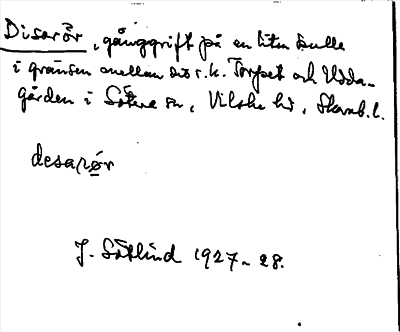 Disarör, gånggrift på en liten kulle
i gränsen mellan det s.k. Torpet och Udda-
gården i Sätra sn, Vilske hd, Skarab.l.
desarør
J. Sätlind 1927-28.